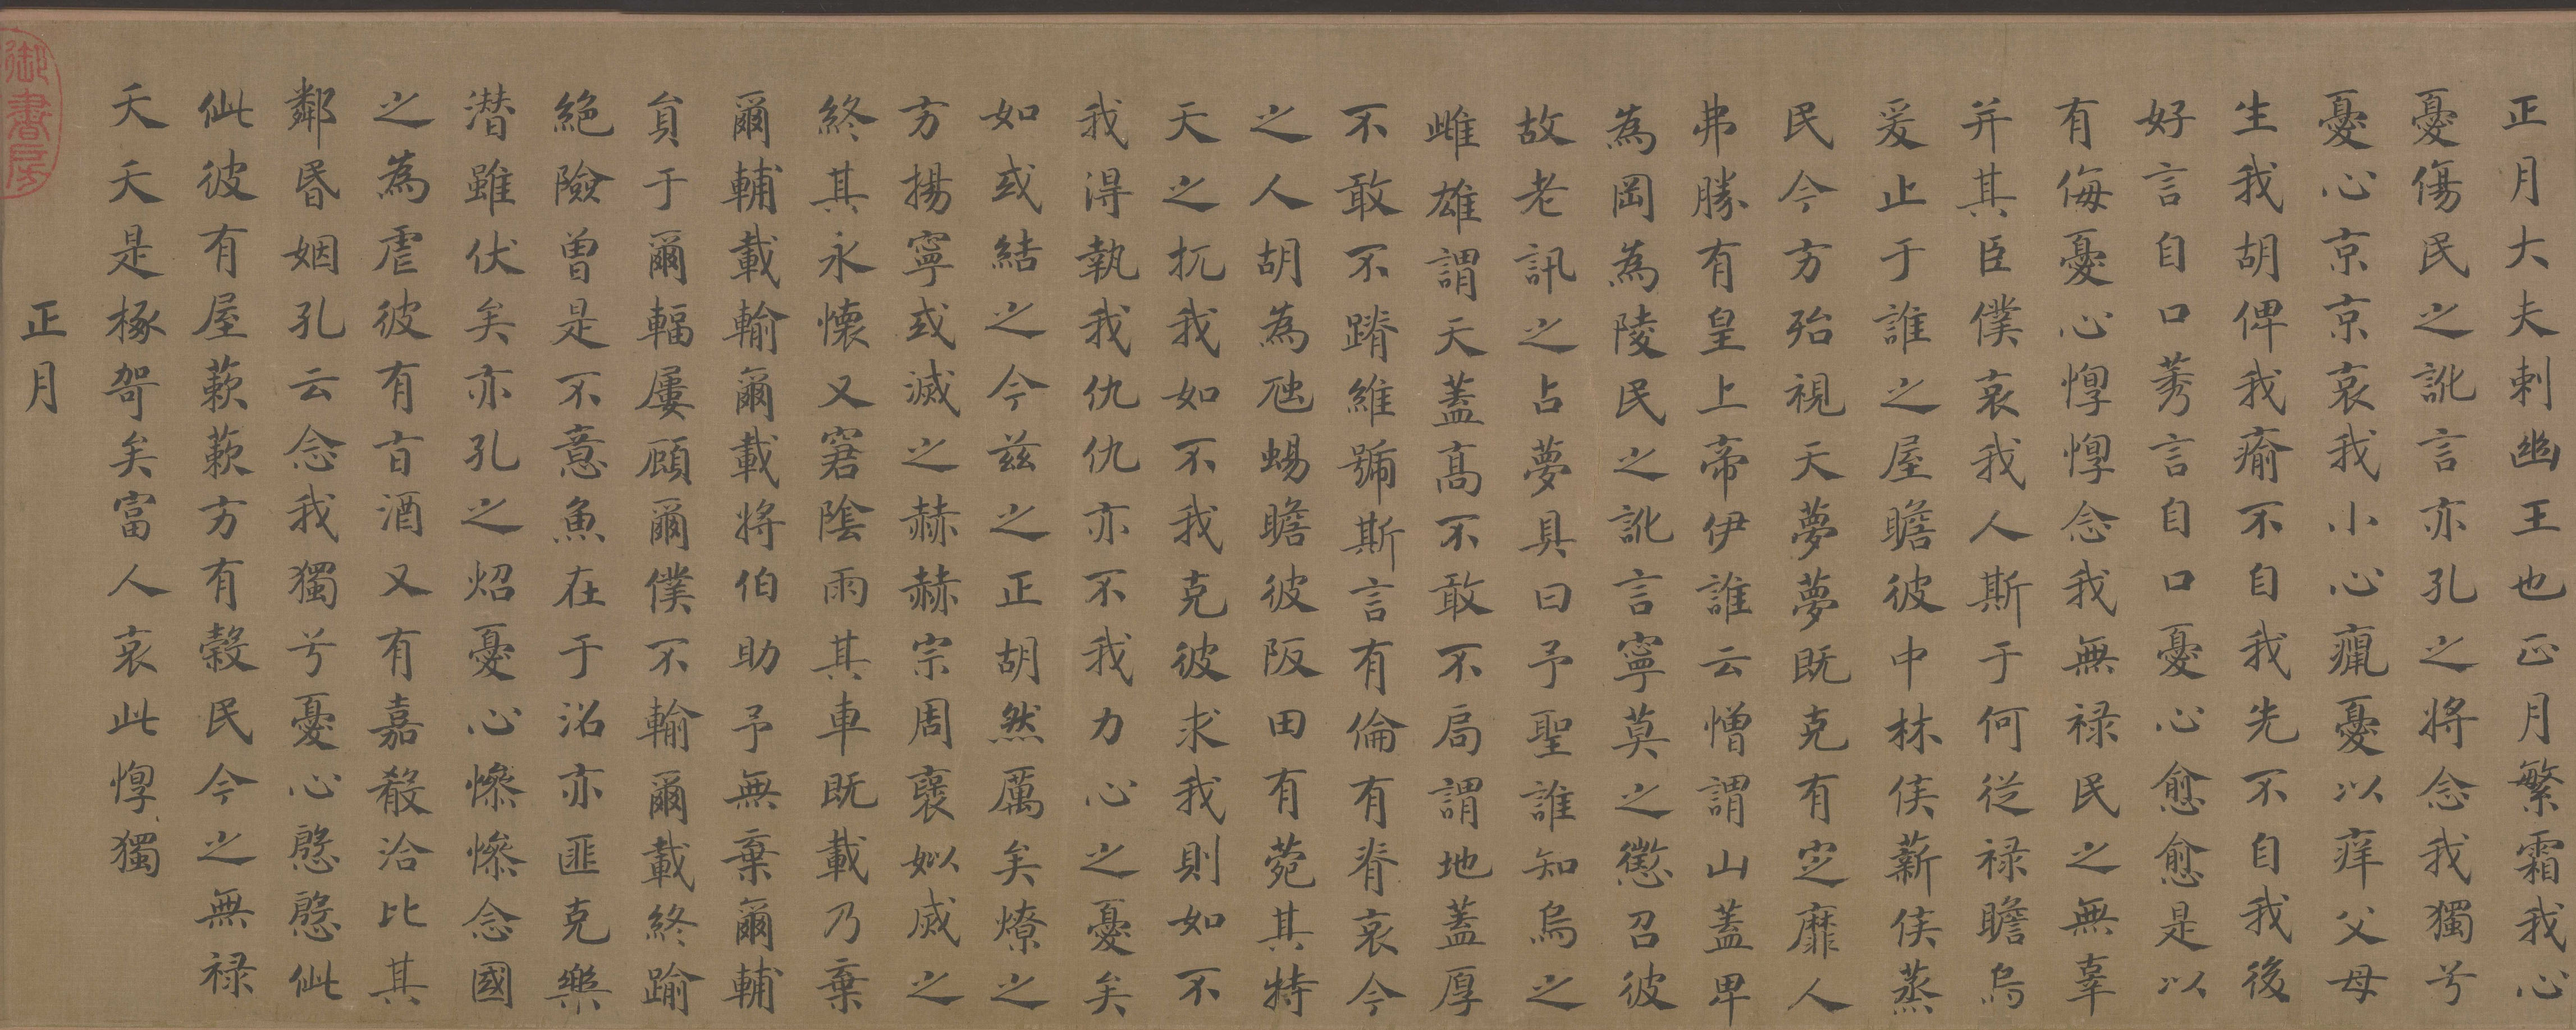 正月大夫刺幽王也正月繁霜我心
憂傷民之訛言亦孔之將念我獨兮
憂心京京哀我小心癙憂以痒父母
生我胡俾我瘉不自我先不自我後
好言自口莠言自口憂心愈愈是以
有侮憂心惸惸念我無祿民之無辜
并其臣僕哀我人斯于何從祿瞻烏
爰止于誰之屋瞻彼中林侯薪侯蒸
民今方殆視天夢夢既克有定靡人
弗勝有皇上帝伊誰云憎謂山蓋卑
為岡為陵民之訛言寧莫之懲召彼
故老訊之占夢具曰予聖誰知烏之
雌雄謂天蓋高不敢不局謂地蓋厚
不敢不蹐維號斯言有倫有脊哀今
之人胡為虺蜴瞻彼阪田有菀其特
天之扤我如不我克彼求我則如不
我得執我仇仇亦不我力心之憂矣
如或結之今茲之正胡然厲矣燎之
方揚寧或滅之赫赫宗周襃姒烕之
終其永懷又窘陰雨其車既載乃棄
爾輔載輸爾載將伯助予無棄爾輔
員于爾輻屢顧爾僕不輸爾載終踰
絕險曾是不意魚在于沼亦匪克樂
潛雖伏矣亦孔之炤憂心慘慘念國
之為虐彼有旨酒又有嘉殽洽比其
鄰昏姻孔云念我獨兮憂心慇慇佌
佌彼有屋蔌蔌方有穀民今之無祿
天夭是椓哿矣富人哀此惸獨
正月
御書房